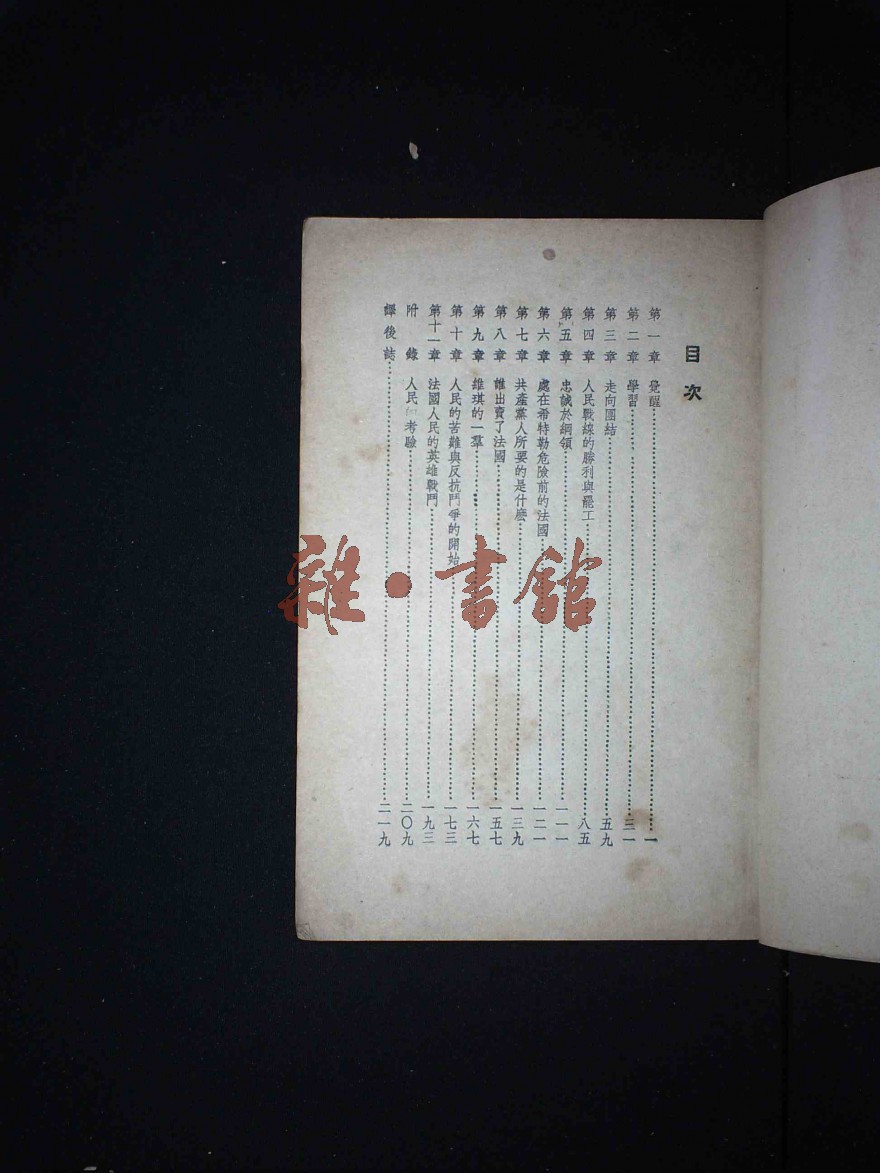 目次
第一章 覺醒……一
第二章 學習……三一
第三章 走向團結……五九
第四章 人民戰線的勝利與罷工……八五
第五章 忠誠於綱領……一一一
第六章 處在希特勒危險前的法國……一二一
第七章 共產黨人所要的是什麼……一三九
第八章 誰出賣了法國……一五七
第九章 維琪的一羣……一六七
第十章 人民的苦難與反抗鬥爭的開始……一七三
第十一章 法國人民的英雄戰鬥……一九三
附錄 人民 考驗……二〇九
譯後誌……二一九
雜·書館